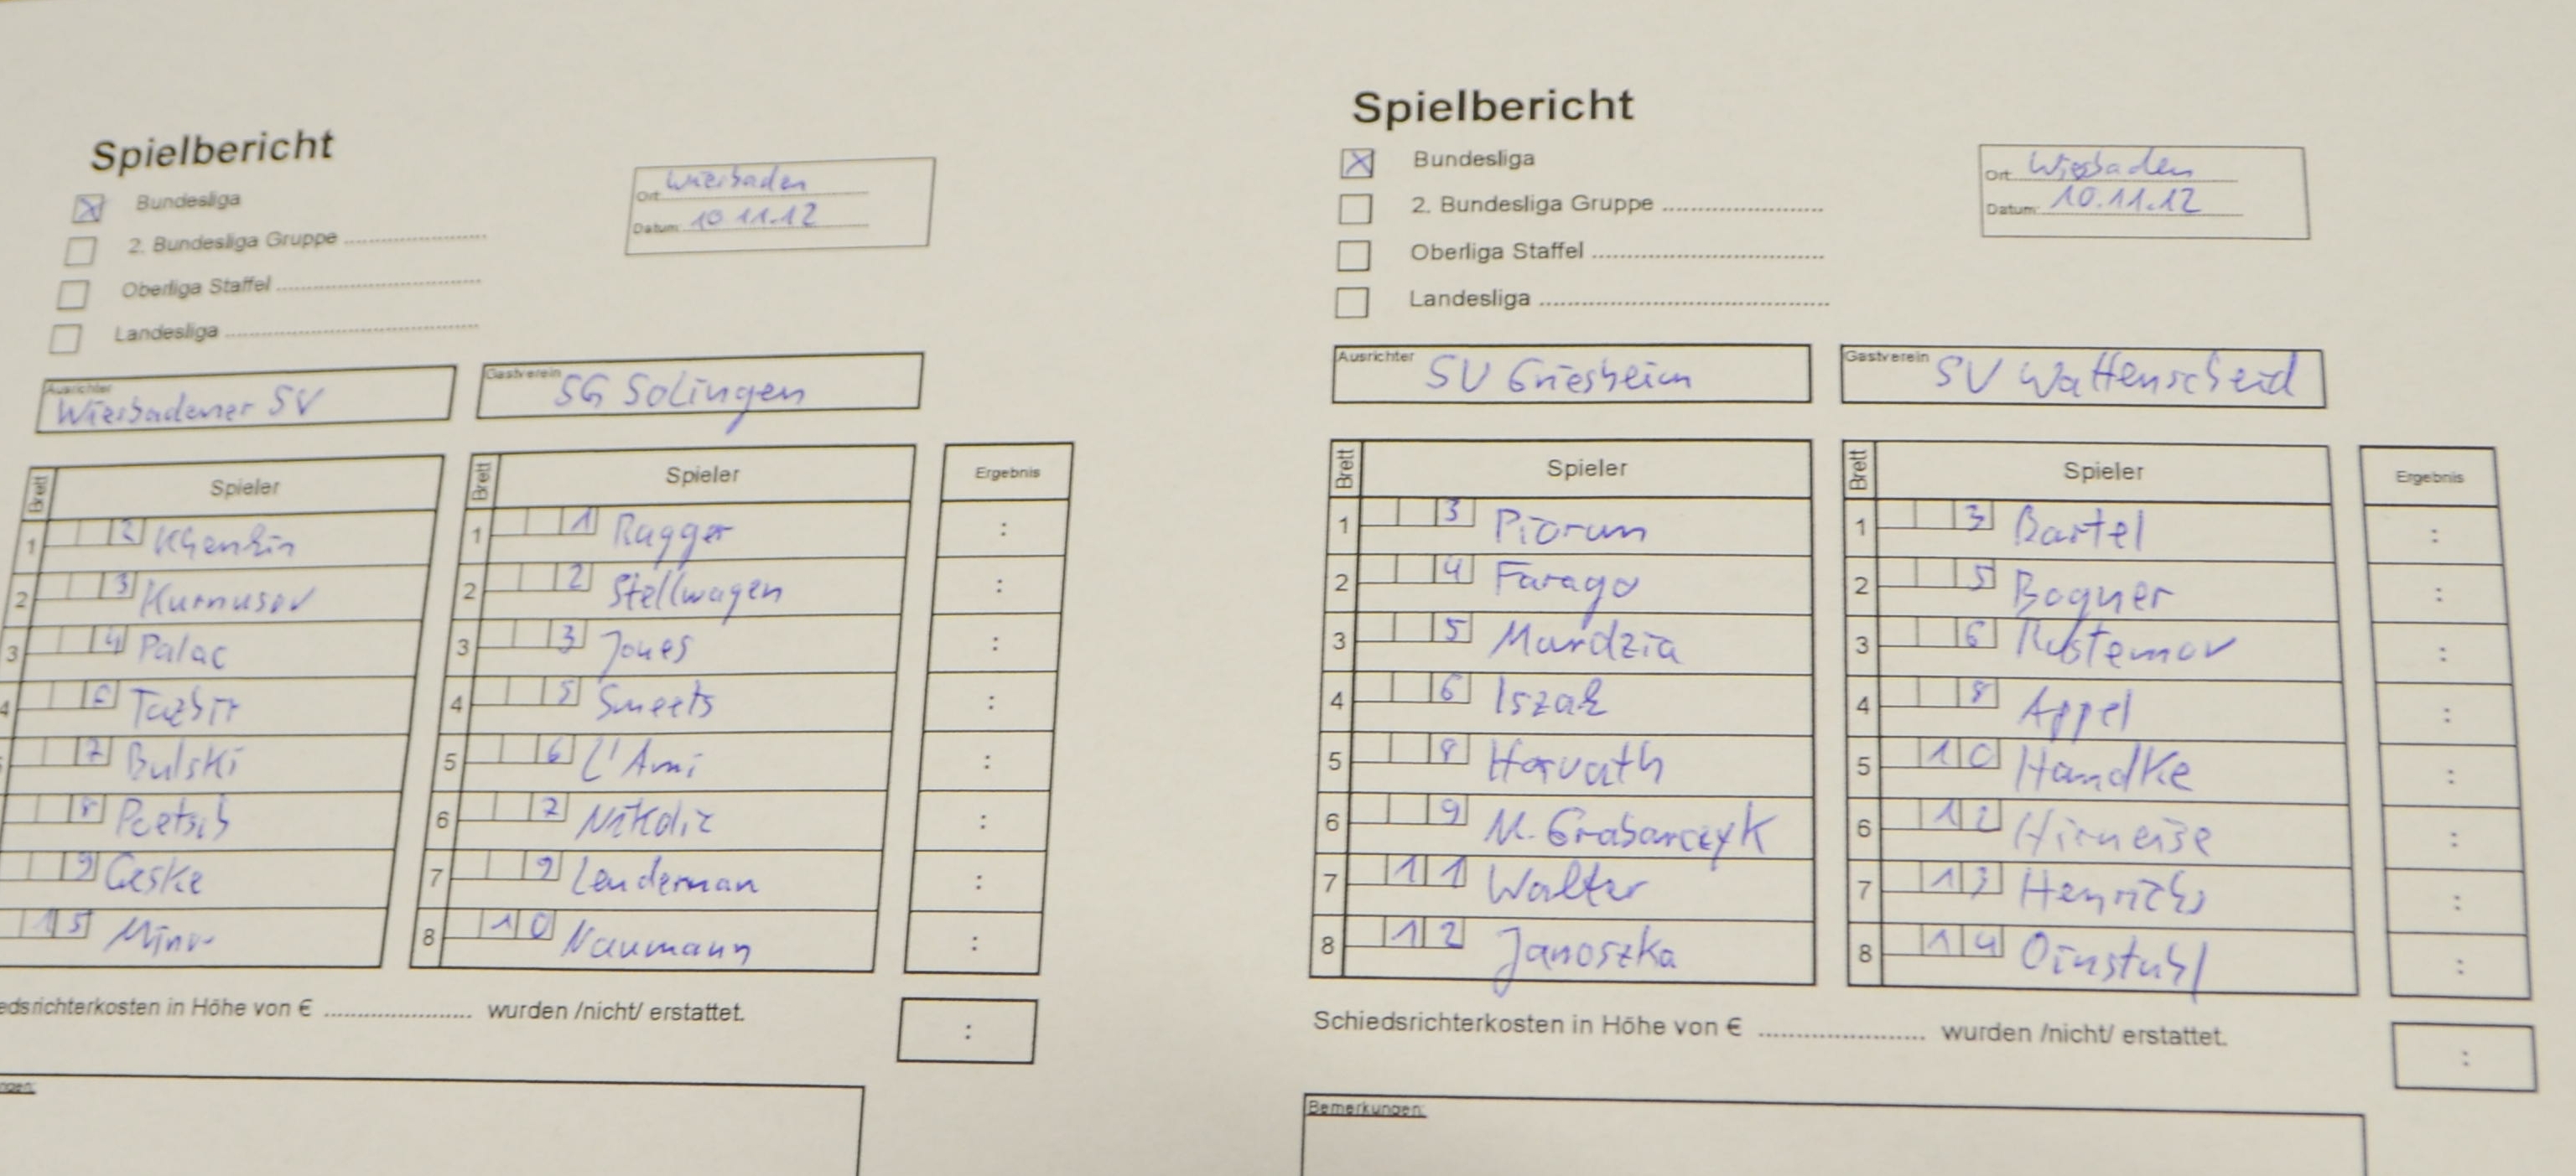 Spielbericht
Bundesliga
2. Bundesliga Gruppe
Oberliga Staffel
Landesliga
Ort: Wiesbaden
Datum: 10.11.12
Ausrichter Wiesbadener SV
Gastverein SG Solingen
Brett Spieler Brett Spieler Ergebnis
1 2 Khenkin 1 1 Ragger :
2 3 Kurnusov 2 2 Stellwagen :
3 4 Palac 3 3 Jones :
4 6 Tazbir 4 5 Smeets :
7 Bulski 5 6 L'Ami :
8 Poetsch 6 7 Nikolic :
9 Geske 7 9 Lenderman :
15 8 10 Naumann :
edsrichterkosten in Höhe von € wurden /nicht/ erstattet. :
ngen:
Spielbericht
Bundesliga
2. Bundesliga Gruppe
Oberliga Staffel
Landesliga
Ort: Wiesbaden
Datum: 10.11.12
Ausrichter SV Griesheim
Gastverein SV Wattenscheid
Brett Spieler Brett Spieler Ergebnis
1 3 Piorun 1 3 Bartel :
2 4 Farago 2 5 Bogner :
3 5 Murdzia 3 6 Rustemov :
4 6 Iszak 4 8 Appel :
5 8 Horvath 5 10 Handke :
6 9 M. Grabarczyk 6 12 Hirneise :
7 11 Walter 7 13 Henrichs :
8 12 Janoszka 8 14 Oinstuhl :
Schiedsrichterkosten in Höhe von € wurden /nicht/ erstattet. :
Bemerkungen: